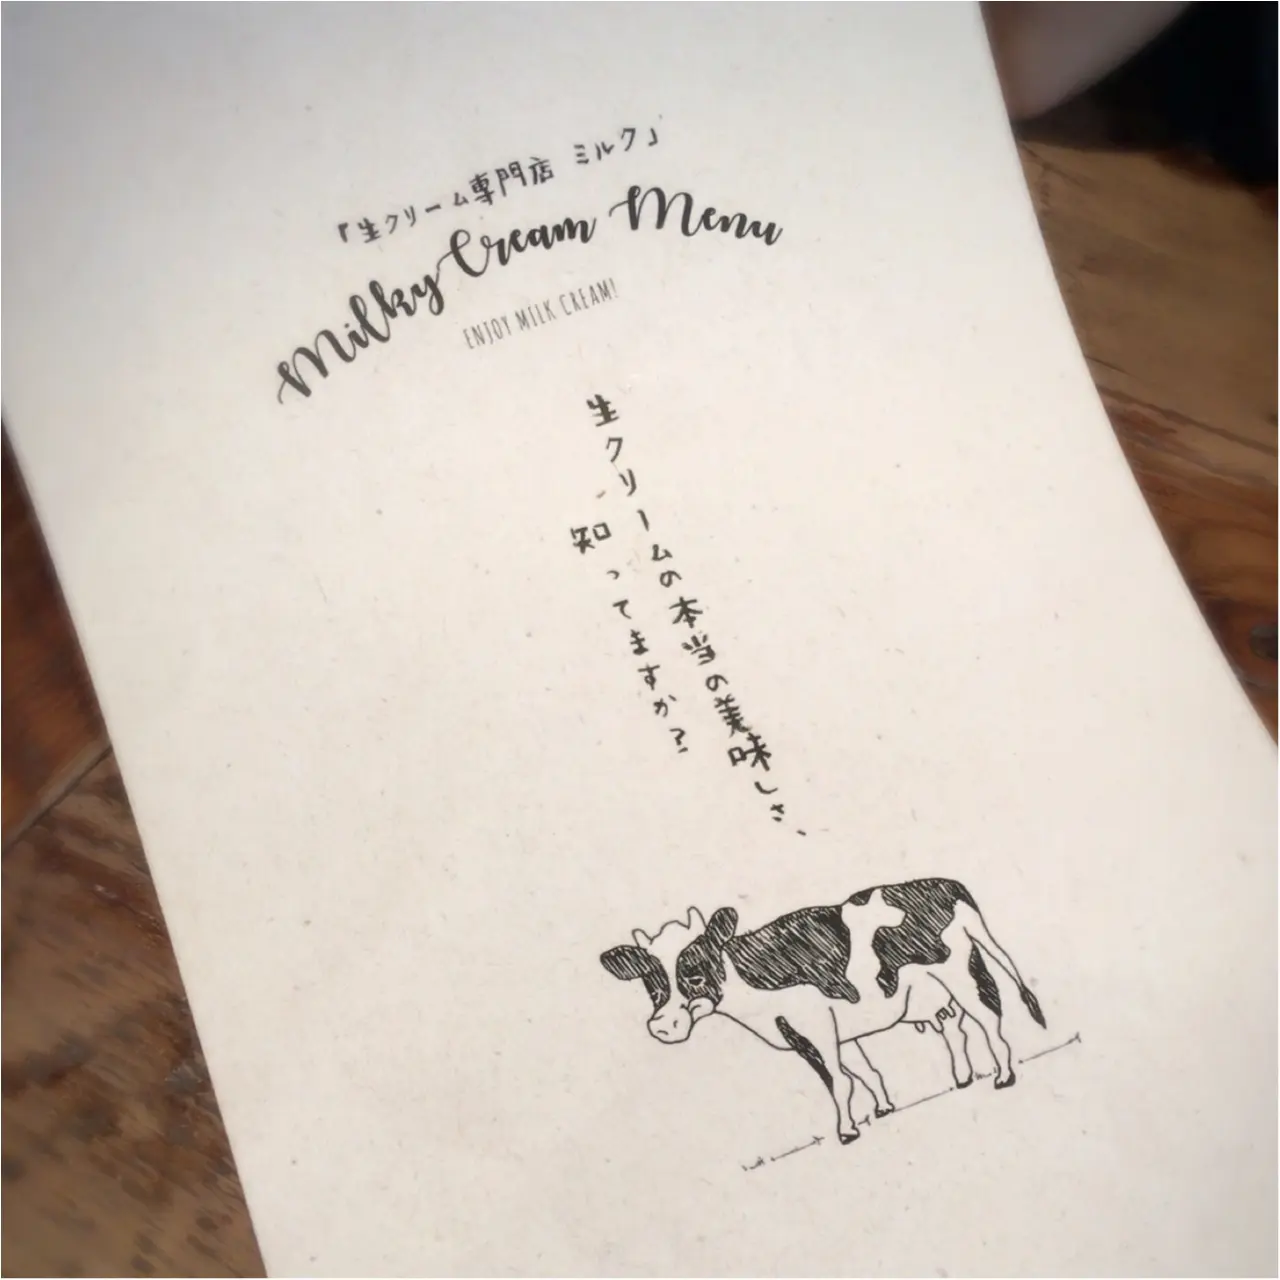 『生クリーム専門店 ミルク』
Milky Cream Menu
ENJOY MILK CREAM!
生クリームの本当の美味しさ、
知ってますか?